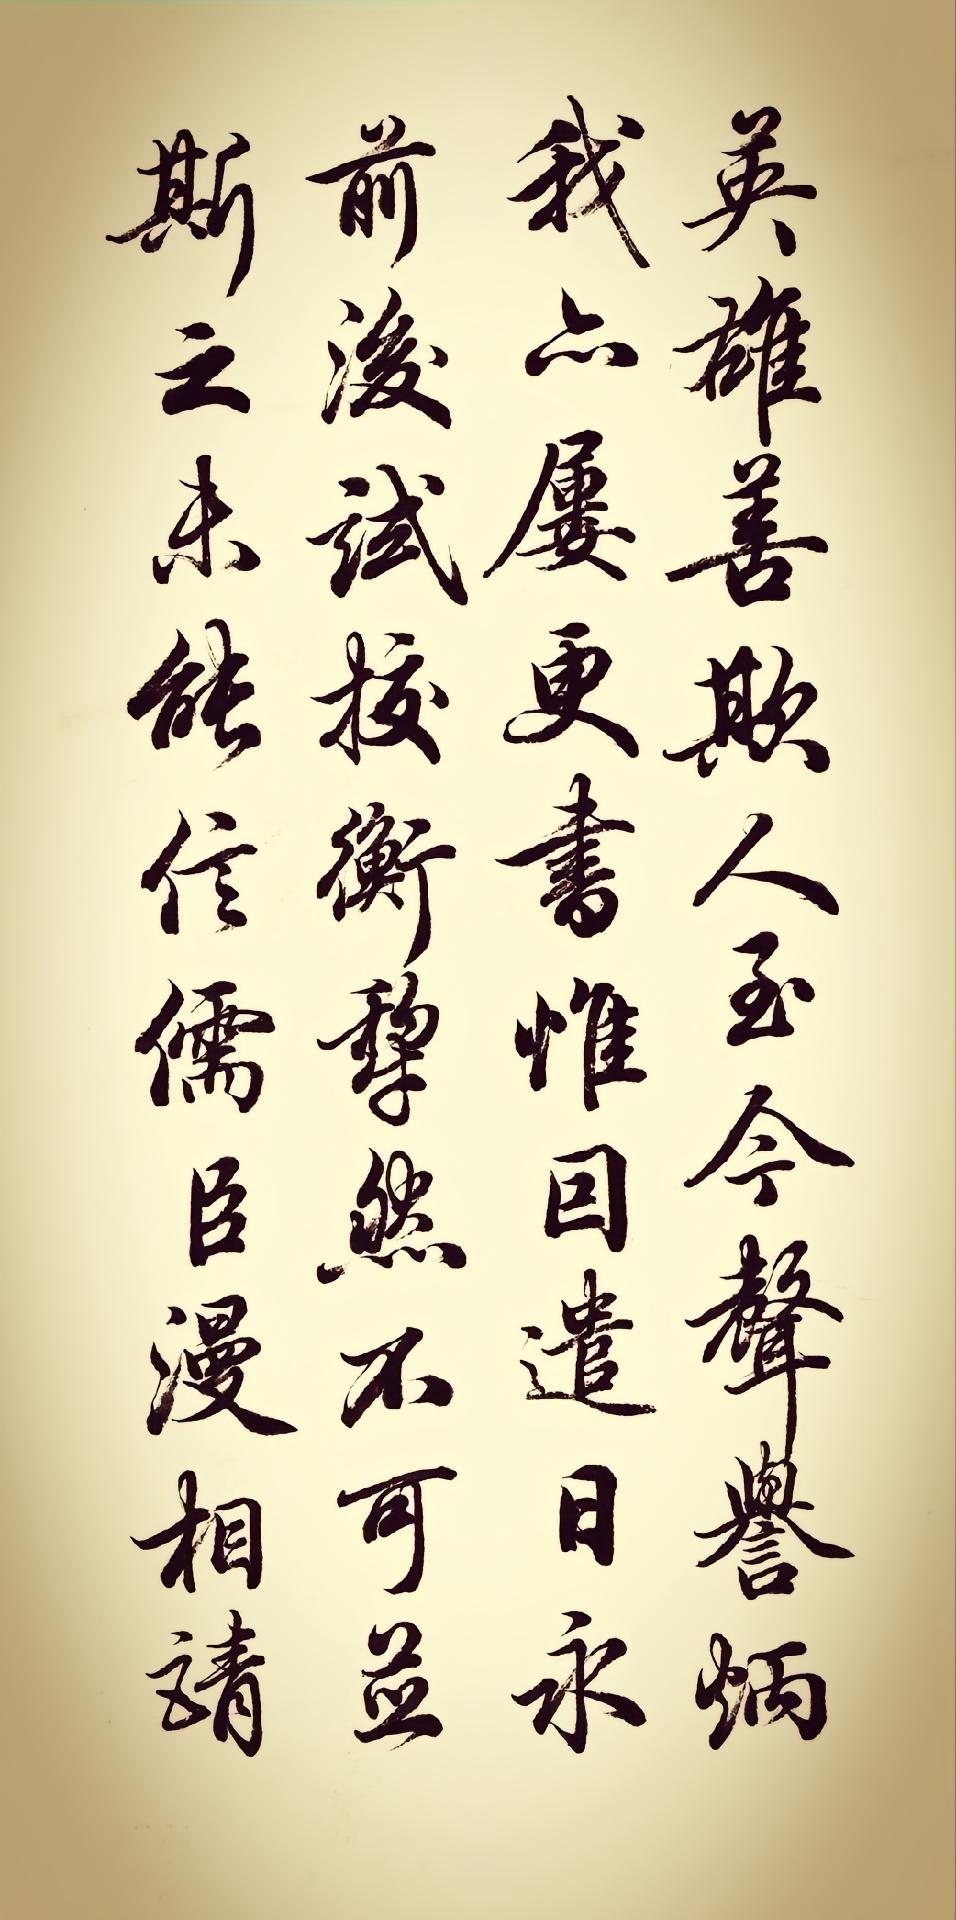 英雄善欺人至今聲譽炳
我亦屢更書惟因遣日永
前後試挍衡犂然不可並
斯之未能信儒臣漫相請